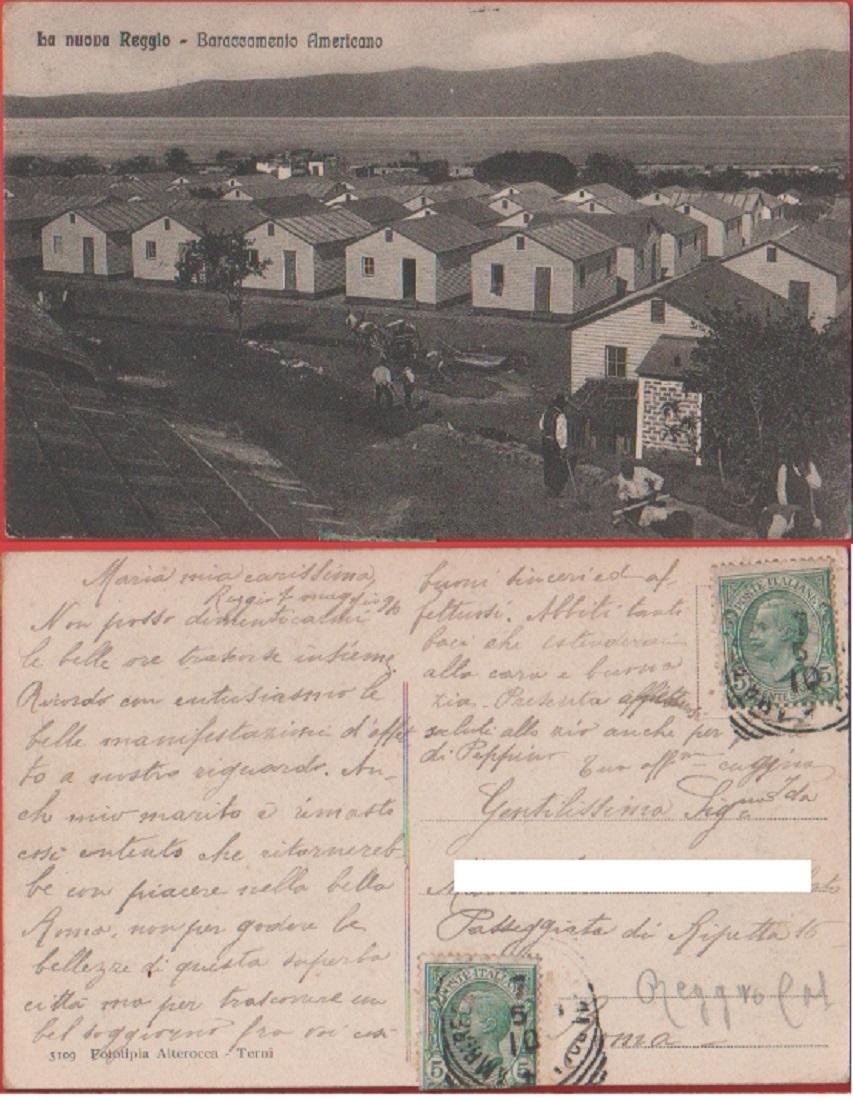 La nuova Reggio - Baraccamento Americano
Maria mia carissima,
Reggio 1 maggio 910
Non posso dimenticalmi
le belle ore trascorse insieme.
Ricordo con entusiasmo le
belle manifestazioni d'affet
to a nostro riguardo. An-
ch mio marito è rimasto
così contento che ritornereb-
be con piacere nella bella
Roma, non per godere le
bellezze di questa superba
città ma per trascorrere un
bel soggiorno fra voi così
buoni sinceri ed af-
fettuosi. Abbiti tanti
baci che estenderai
alla cara e buona
zia. Presenta affettuosi
saluti allo zio anche per
di Peppino
Tua aff.ma cuggina
Ida
Gentilissima Sig.na
Passeggiata di Ripetta 16
Roma
Reggio Cal
POSTE ITALIANE
5 5
5
10
POSTE ITALIANE
5 5
5
10
3109 Fototipia Alterocca - Terni